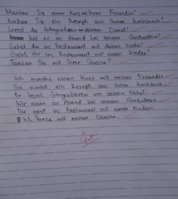 Machen Sie einen Kurs mit Ihrer Freundin?
Kochen Sie ein Rezept aus Ihrem Kochbuch?
Lernst du Fotografieren von deinem Onkel?
Isst er zu Abend bei seinen Großeltern?
Gehst du ins Restaurant mit deinen Kinder?
Geht ihr ins Restaurant mit euren Kinder?
Tanzen Sie mit Ihrer Cousine?
Ich mache einen Kurs mit meiner Freundin
Sie kocht ein Rezept aus ihrem Kochbuch
Er lernt Fotografieren von seinem Onkel
Wir essen zu Abend bei unseren Großeltern
Ihr geht ins Restaurant mit euren Kindern
Ich tanze mit meiner Cousine